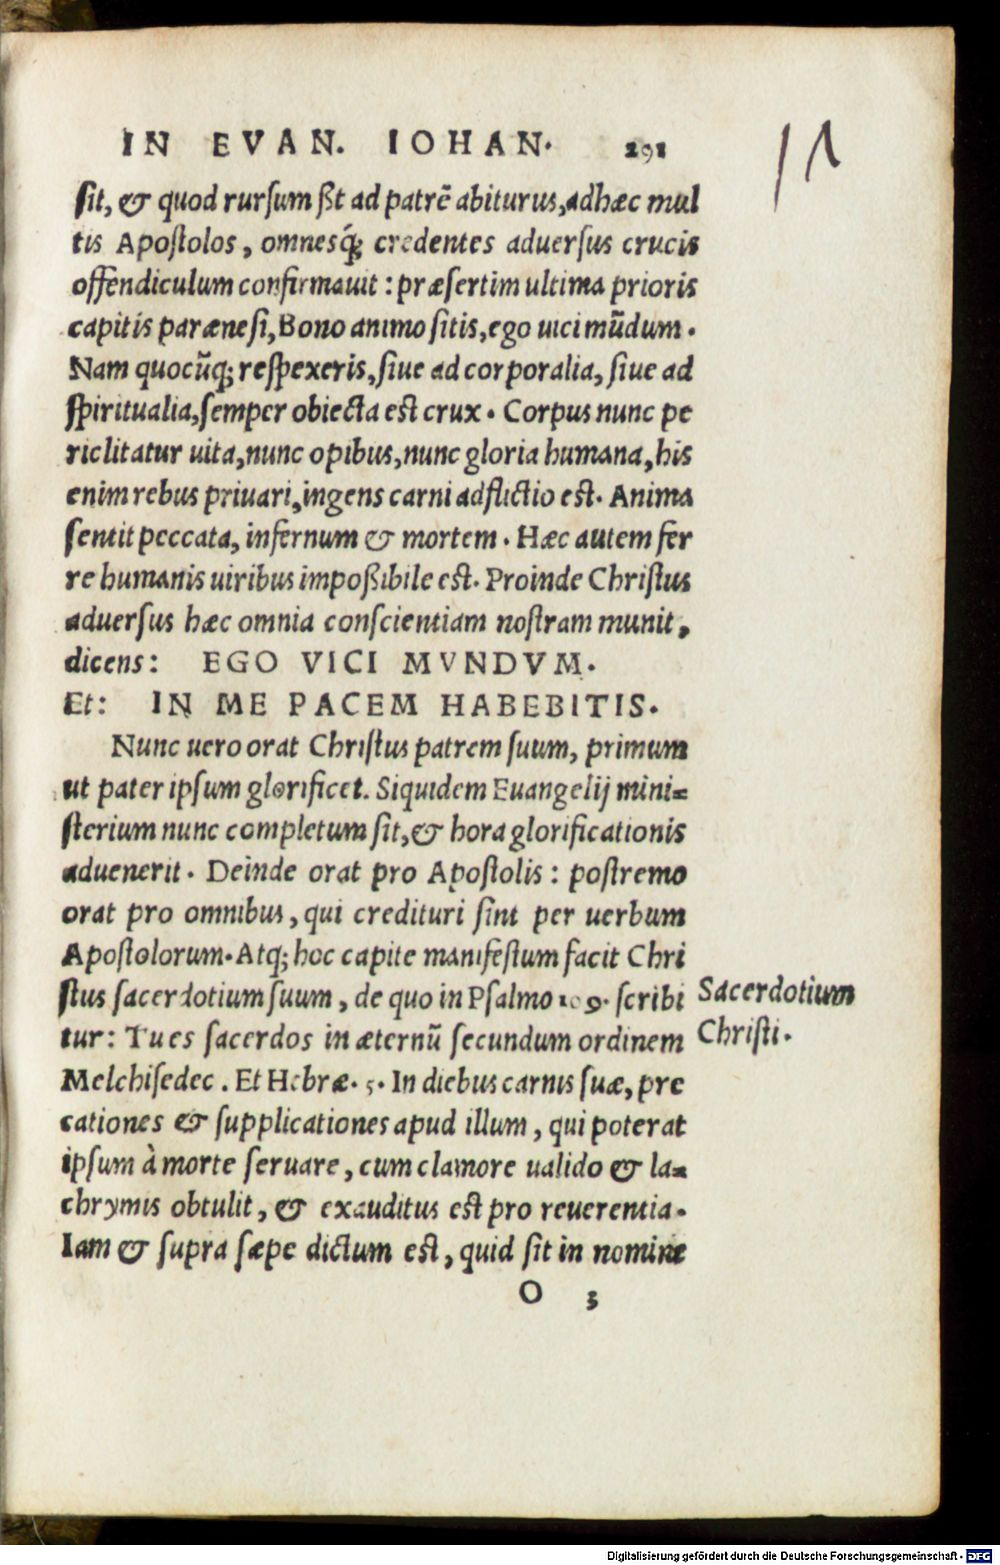 IN EVAN. IOHAN. 291
sit, & quod rursum sit ad patrē abiturus, adhæc mul
tis Apostolos, omnesq́; credentes aduersus crucis
offendiculum confirmauit : præsertim ultima prioris
capitis parænesi, Bono animo sitis, ego uici mūdum.
Nam quocūq; respexeris, siue ad corporalia, siue ad
spiritualia, semper obiecta est crux. Corpus nunc pe
riclitatur uita, nunc opibus, nunc gloria humana, his
enim rebus priuari, ingens carni adflictio est. Anima
sentit peccata, infernum & mortem. Hæc autem fer
re humanis uiribus impoßibile est. Proinde Christus
aduersus hæc omnia conscientiam nostram munit,
dicens: EGO VICI MVNDVM.
Et: IN ME PACEM HABEBITIS.
Nunc uero orat Christus patrem suum, primum
ut pater ipsum glorificet. Siquidem Euangelij mini=
sterium nunc completum sit, & hora glorificationis
aduenerit. Deinde orat pro Apostolis : postremo
orat pro omnibus, qui credituri sint per uerbum
Apostolorum. Atq; hoc capite manifestum facit Chri
stus sacerdotium suum, de quo in Psalmo 109. scribi
tur: Tu es sacerdos in æternū secundum ordinem
Melchisedec. Et Hebræ. 5. In diebus carnis suæ, pre
cationes & supplicationes apud illum, qui poterat
ipsum à morte seruare, cum clamore ualido & la=
chrymis obtulit, & exauditus est pro reuerentia.
Iam & supra sæpe dictum est, quid sit in nomine
O 3
Sacerdotium
Christi.
Digitalisierung gefördert durch die Deutsche Forschungsgemeinschaft - DFG